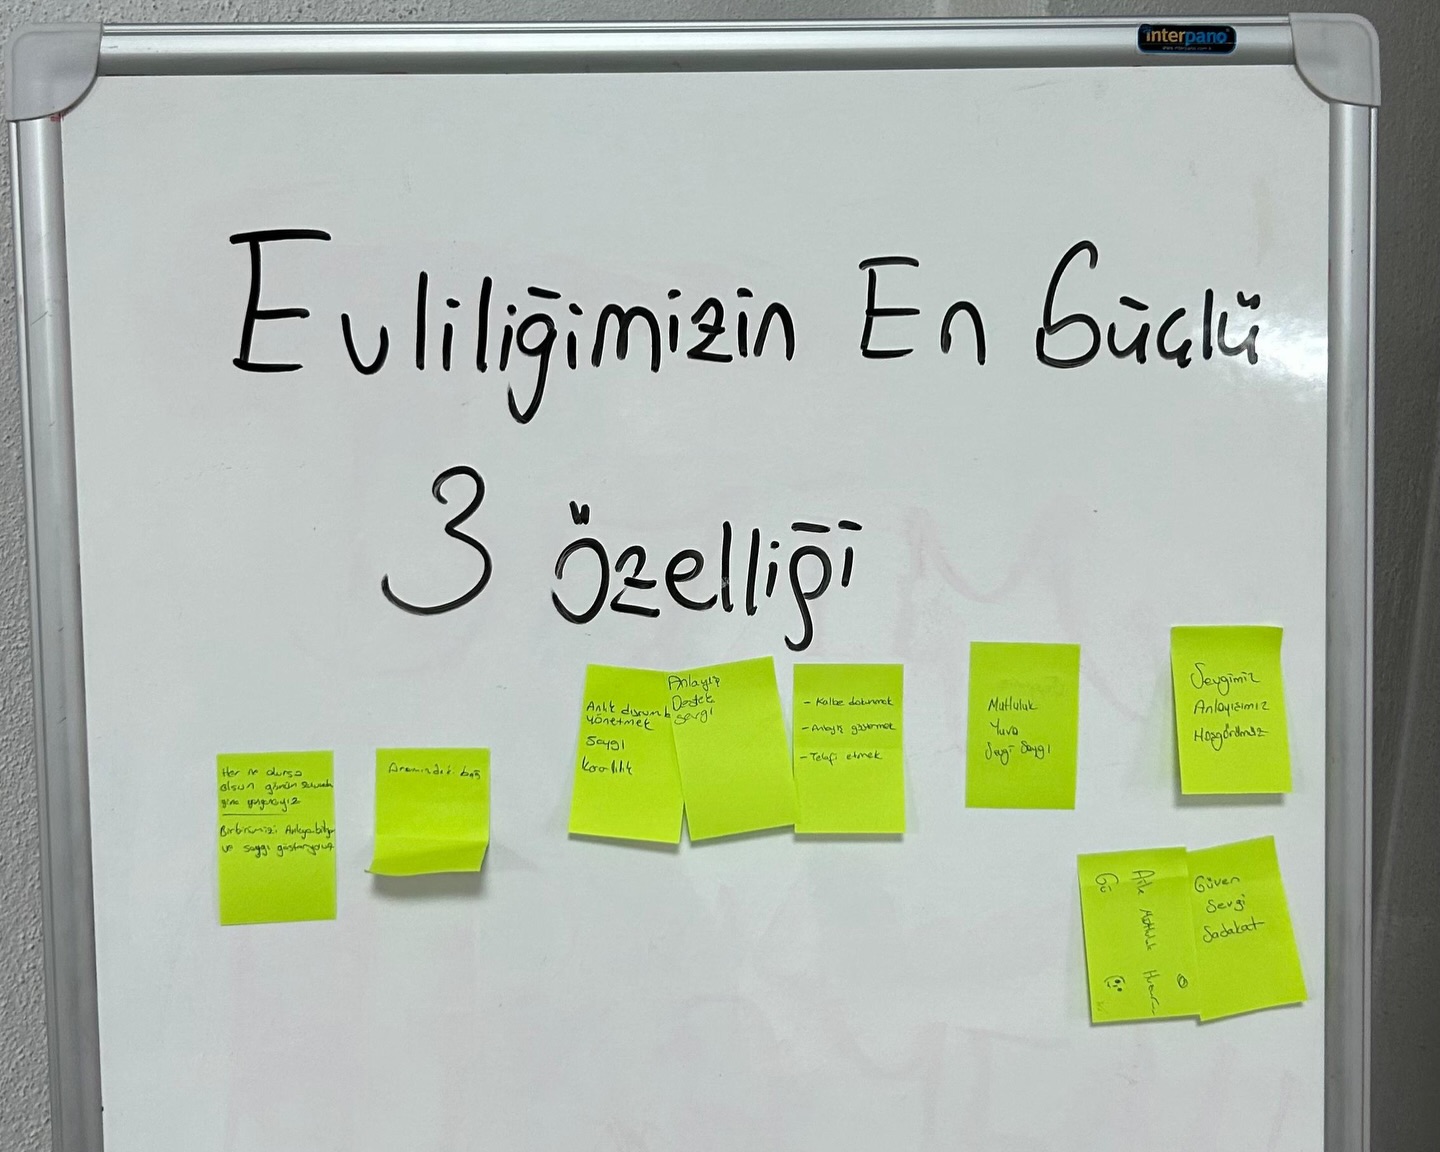 interpano
Evliliğimizin En Güçlü
3 özelliği
Her ne olursa
olsun günün sonunda
yine
Birbirimizi Anlayabiliyor
ve saygı gösteriyoruz
Aramızdaki bağ
Anlık durumları
yönetmek
Saygı
Anlayış
Destek
Sevgi
- Kalbe dokunmak
- Anlayış göstermek
- Telafi etmek
Mutluluk
Yuva
Sevgi Saygı
Sevgimiz
Anlayışımız
Hoşgörümüz
Aile Mutluluk Huzur
Güven
Sevgi
Sadakat